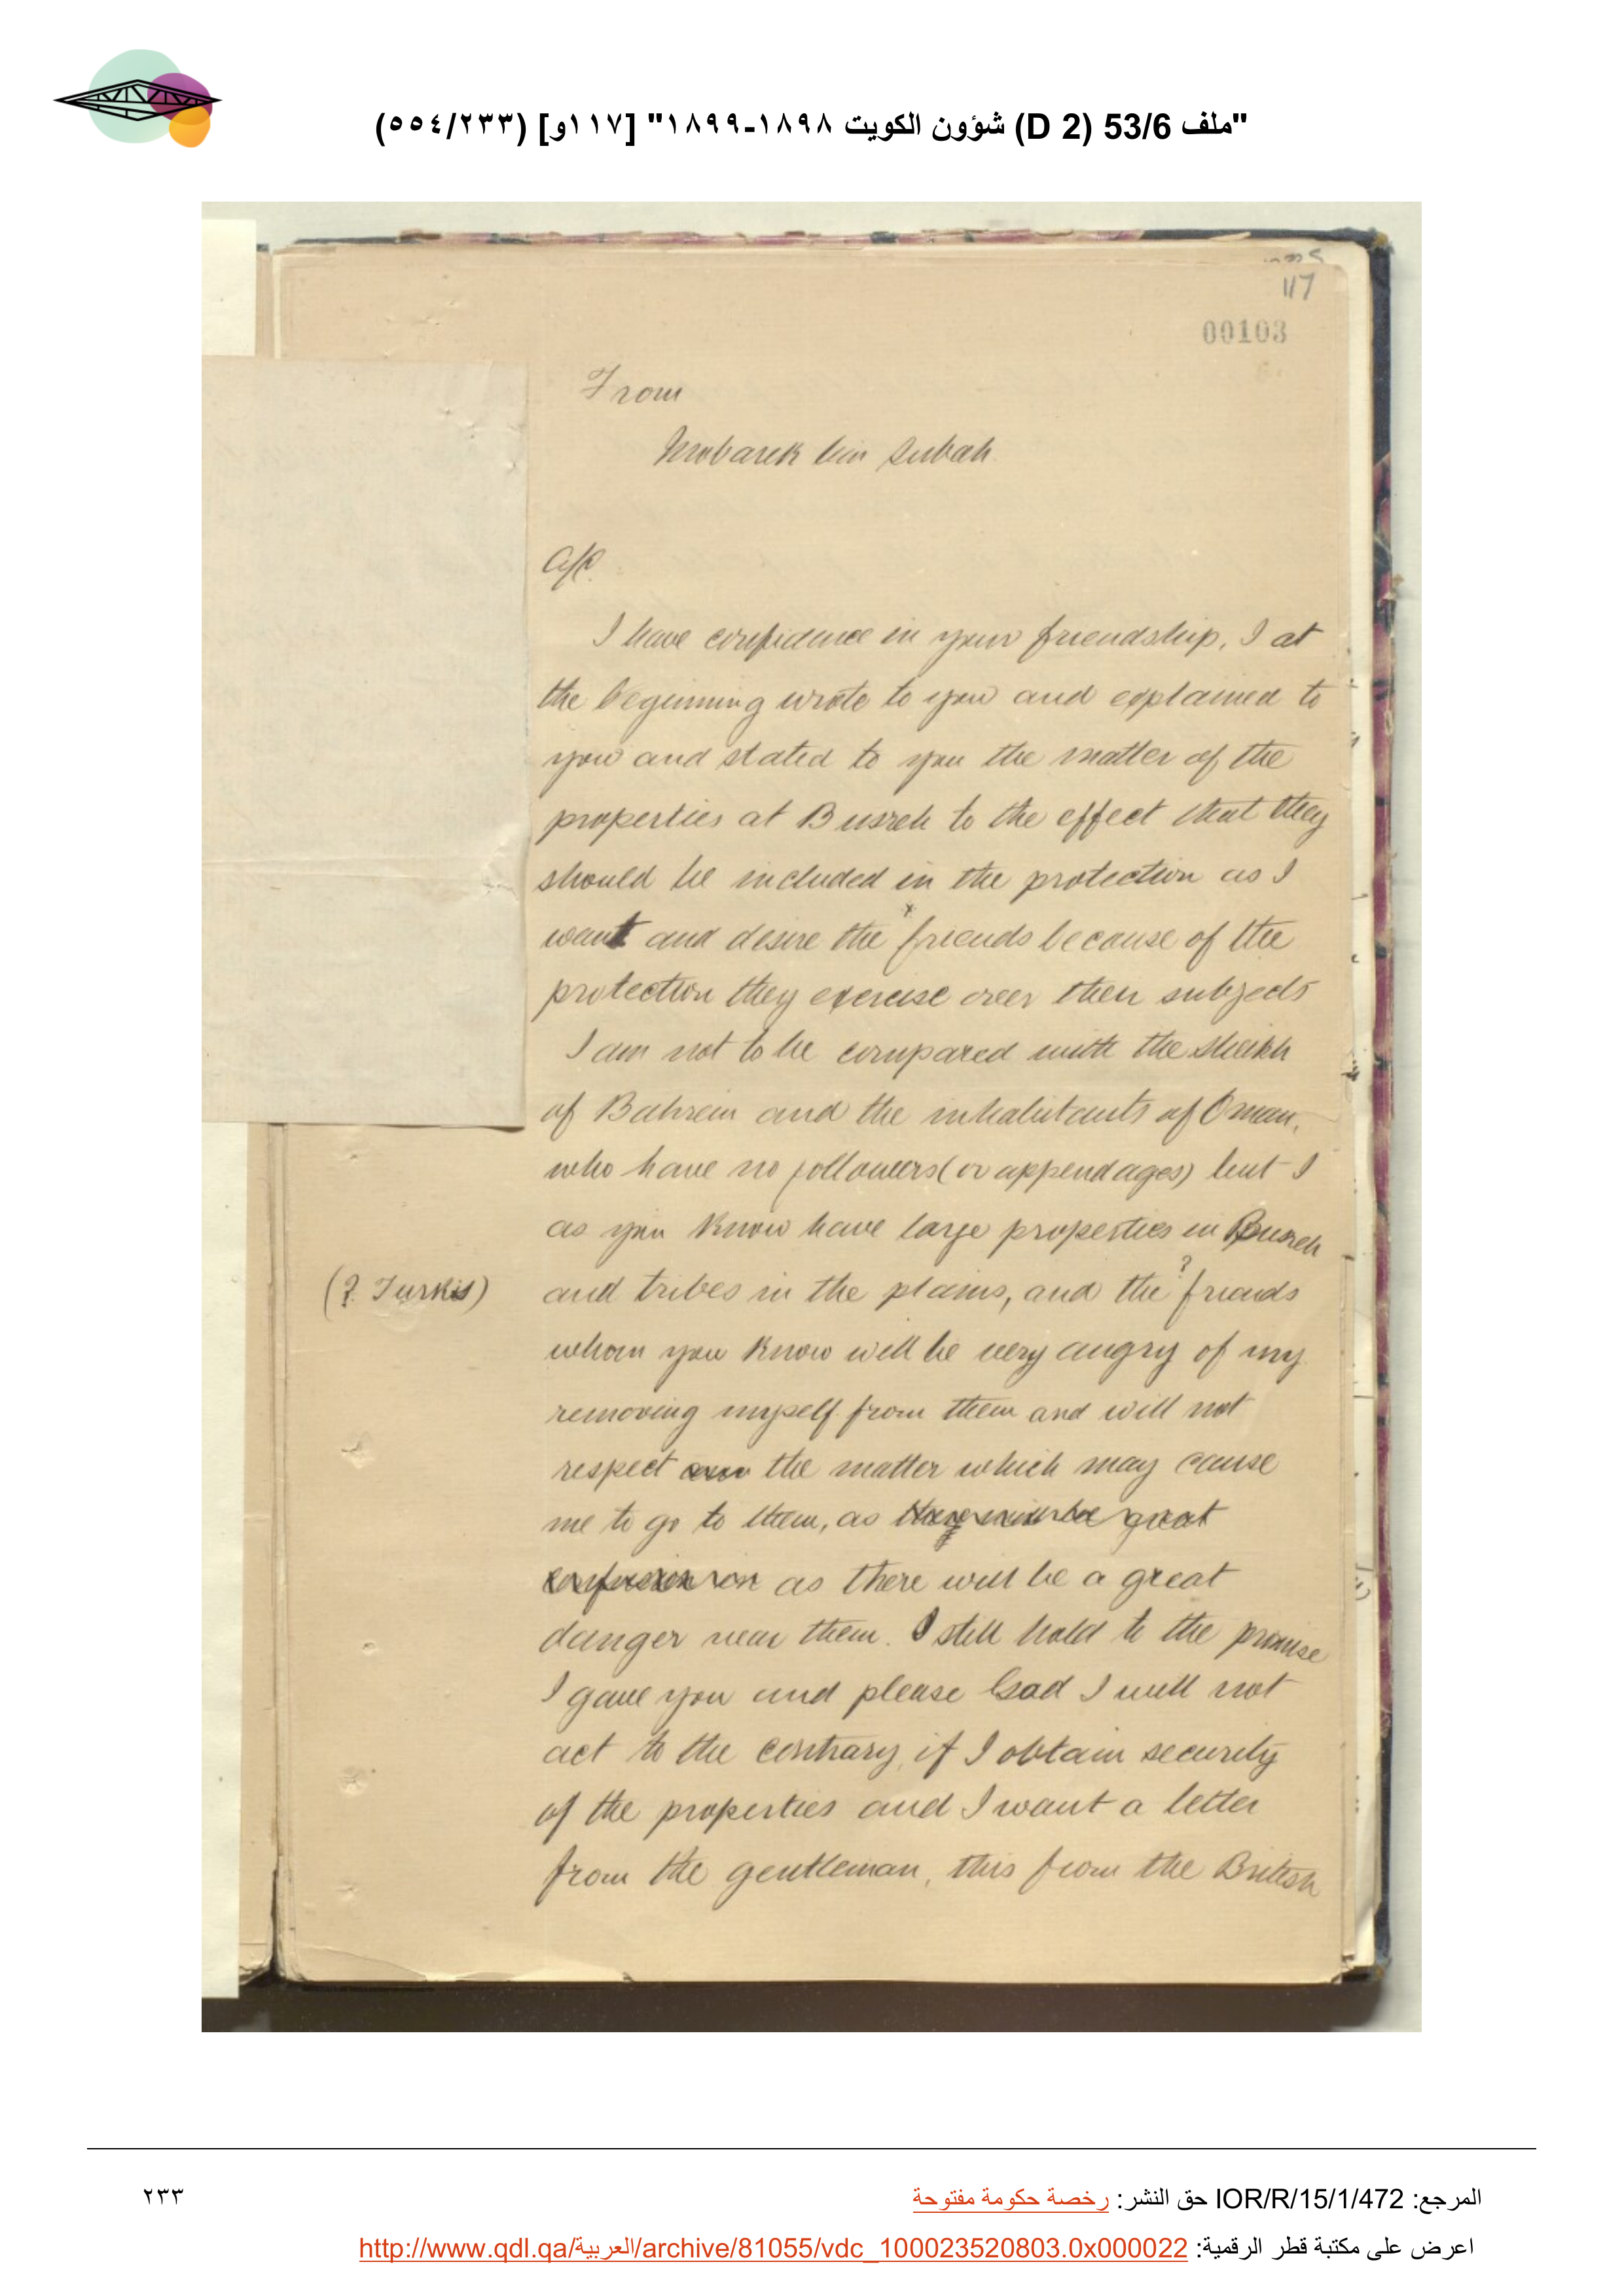 "ملف 53/6 (D 2) شؤون الكويت ١٨٩٨-١٨٩٩" [١١٧و] (٥٥٤/٢٣٣)
117
00103
From
Mobarek bin Subah
A/C.
I have confidence in your friendship, I at
the beginning wrote to you and explained to
you and stated to you the matter of the
properties at Busreh to the effect that they
should be included in the protection as I
want and desire the x friends because of the
protection they exercise over their subjects
I am not to be compared with the Sheikh
of Bahrein and the inhabitants of Oman,
who have no followers (or appendages) but I
as you know have large properties in Busreh
(? Turkis) and tribes in the plains, and the ? friends
whom you know will be very angry of my
removing myself from them and will not
respect the matter which may cause
me to go to them, as they will be great
confusion as there will be a great
danger near them. I still hold to the promise
I gave you and please God I will not
act to the contrary, if I obtain security
of the properties and I want a letter
from the gentleman, this from the British
المرجع: IOR/R/15/1/472 حق النشر: رخصة حكومة مفتوحة
٢٣٣
اعرض على مكتبة قطر الرقمية: http://www.qdl.qa/العربية/archive/81055/vdc_100023520803.0x000022